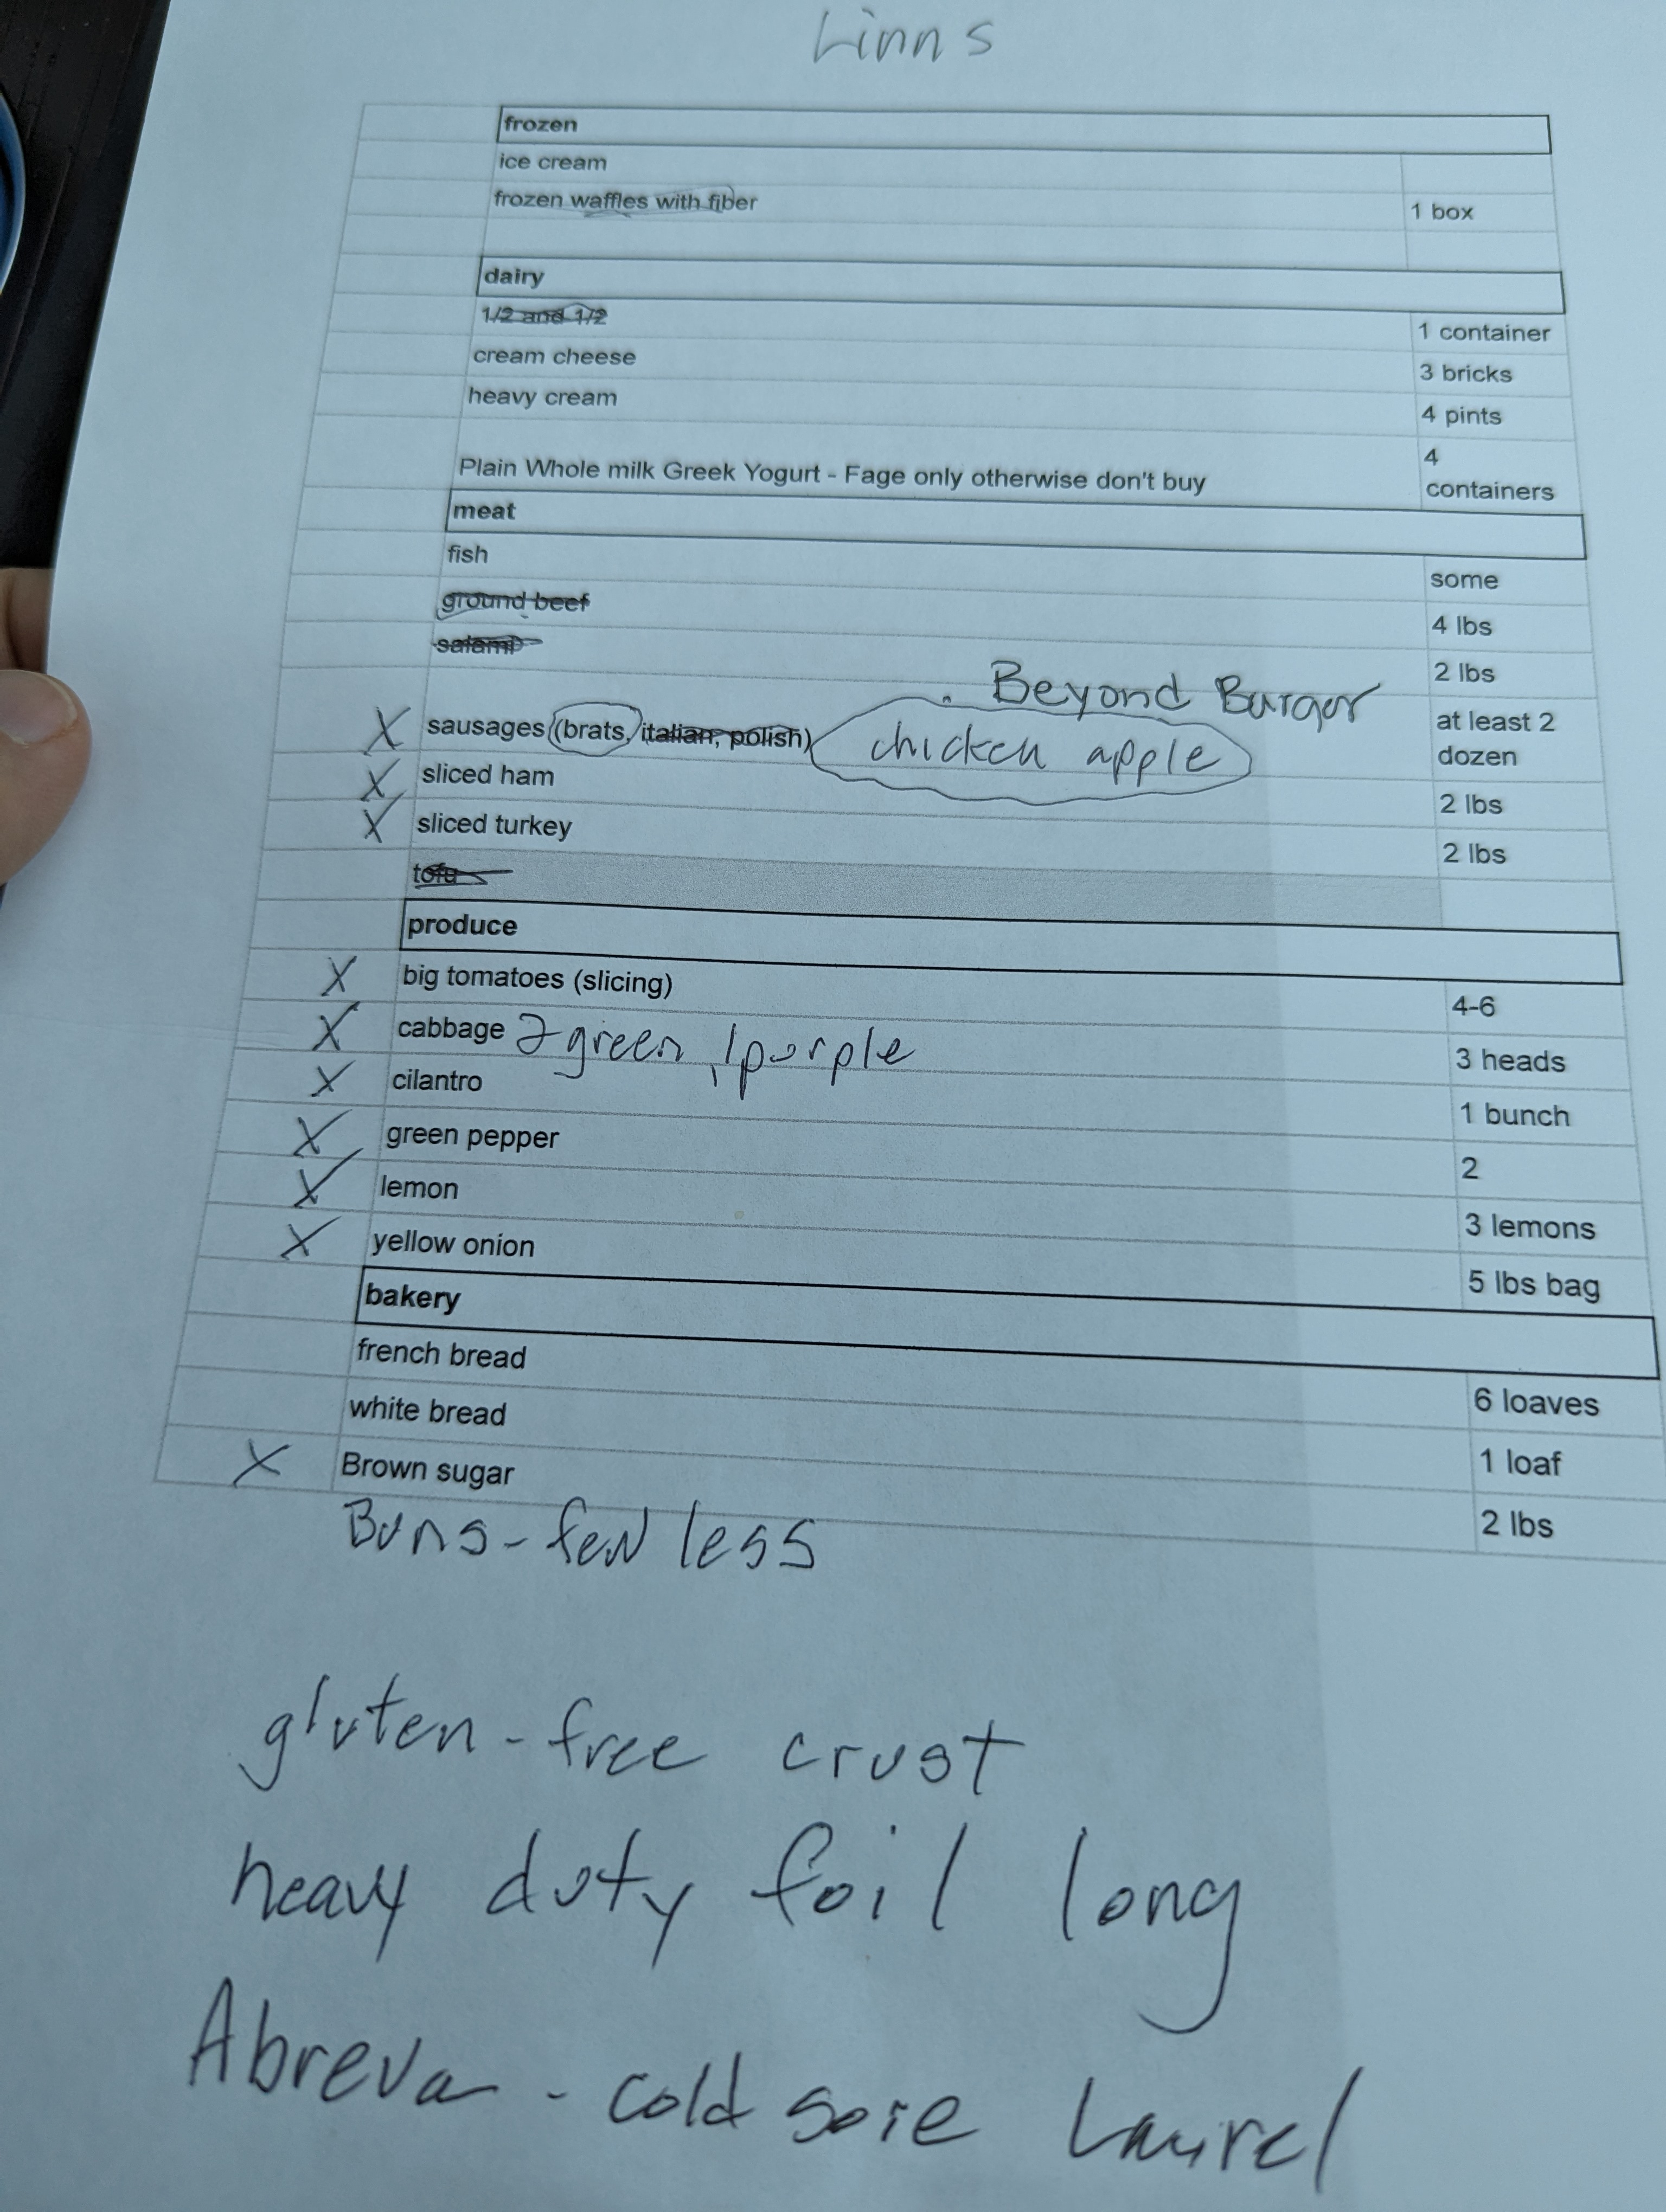 Linns
frozen
ice cream
frozen waffles with fiber 1 box
dairy
1/2 and 1/2 1 container
cream cheese 3 bricks
heavy cream 4 pints
Plain Whole milk Greek Yogurt - Fage only otherwise don't buy 4 containers
meat
fish some
ground beef 4 lbs
salami 2 lbs
Beyond Burger
X sausages (brats, italian, polish) chicken apple at least 2 dozen
X sliced ham 2 lbs
X sliced turkey 2 lbs
tofu
produce
X big tomatoes (slicing) 4-6
X cabbage 2 green, 1 purple 3 heads
X cilantro 1 bunch
X green pepper 2
X lemon 3 lemons
X yellow onion 5 lbs bag
bakery
french bread 6 loaves
white bread 1 loaf
X Brown sugar 2 lbs
Buns - few less
gluten-free crust
heavy duty foil long
Abreva - cold sore Laurel